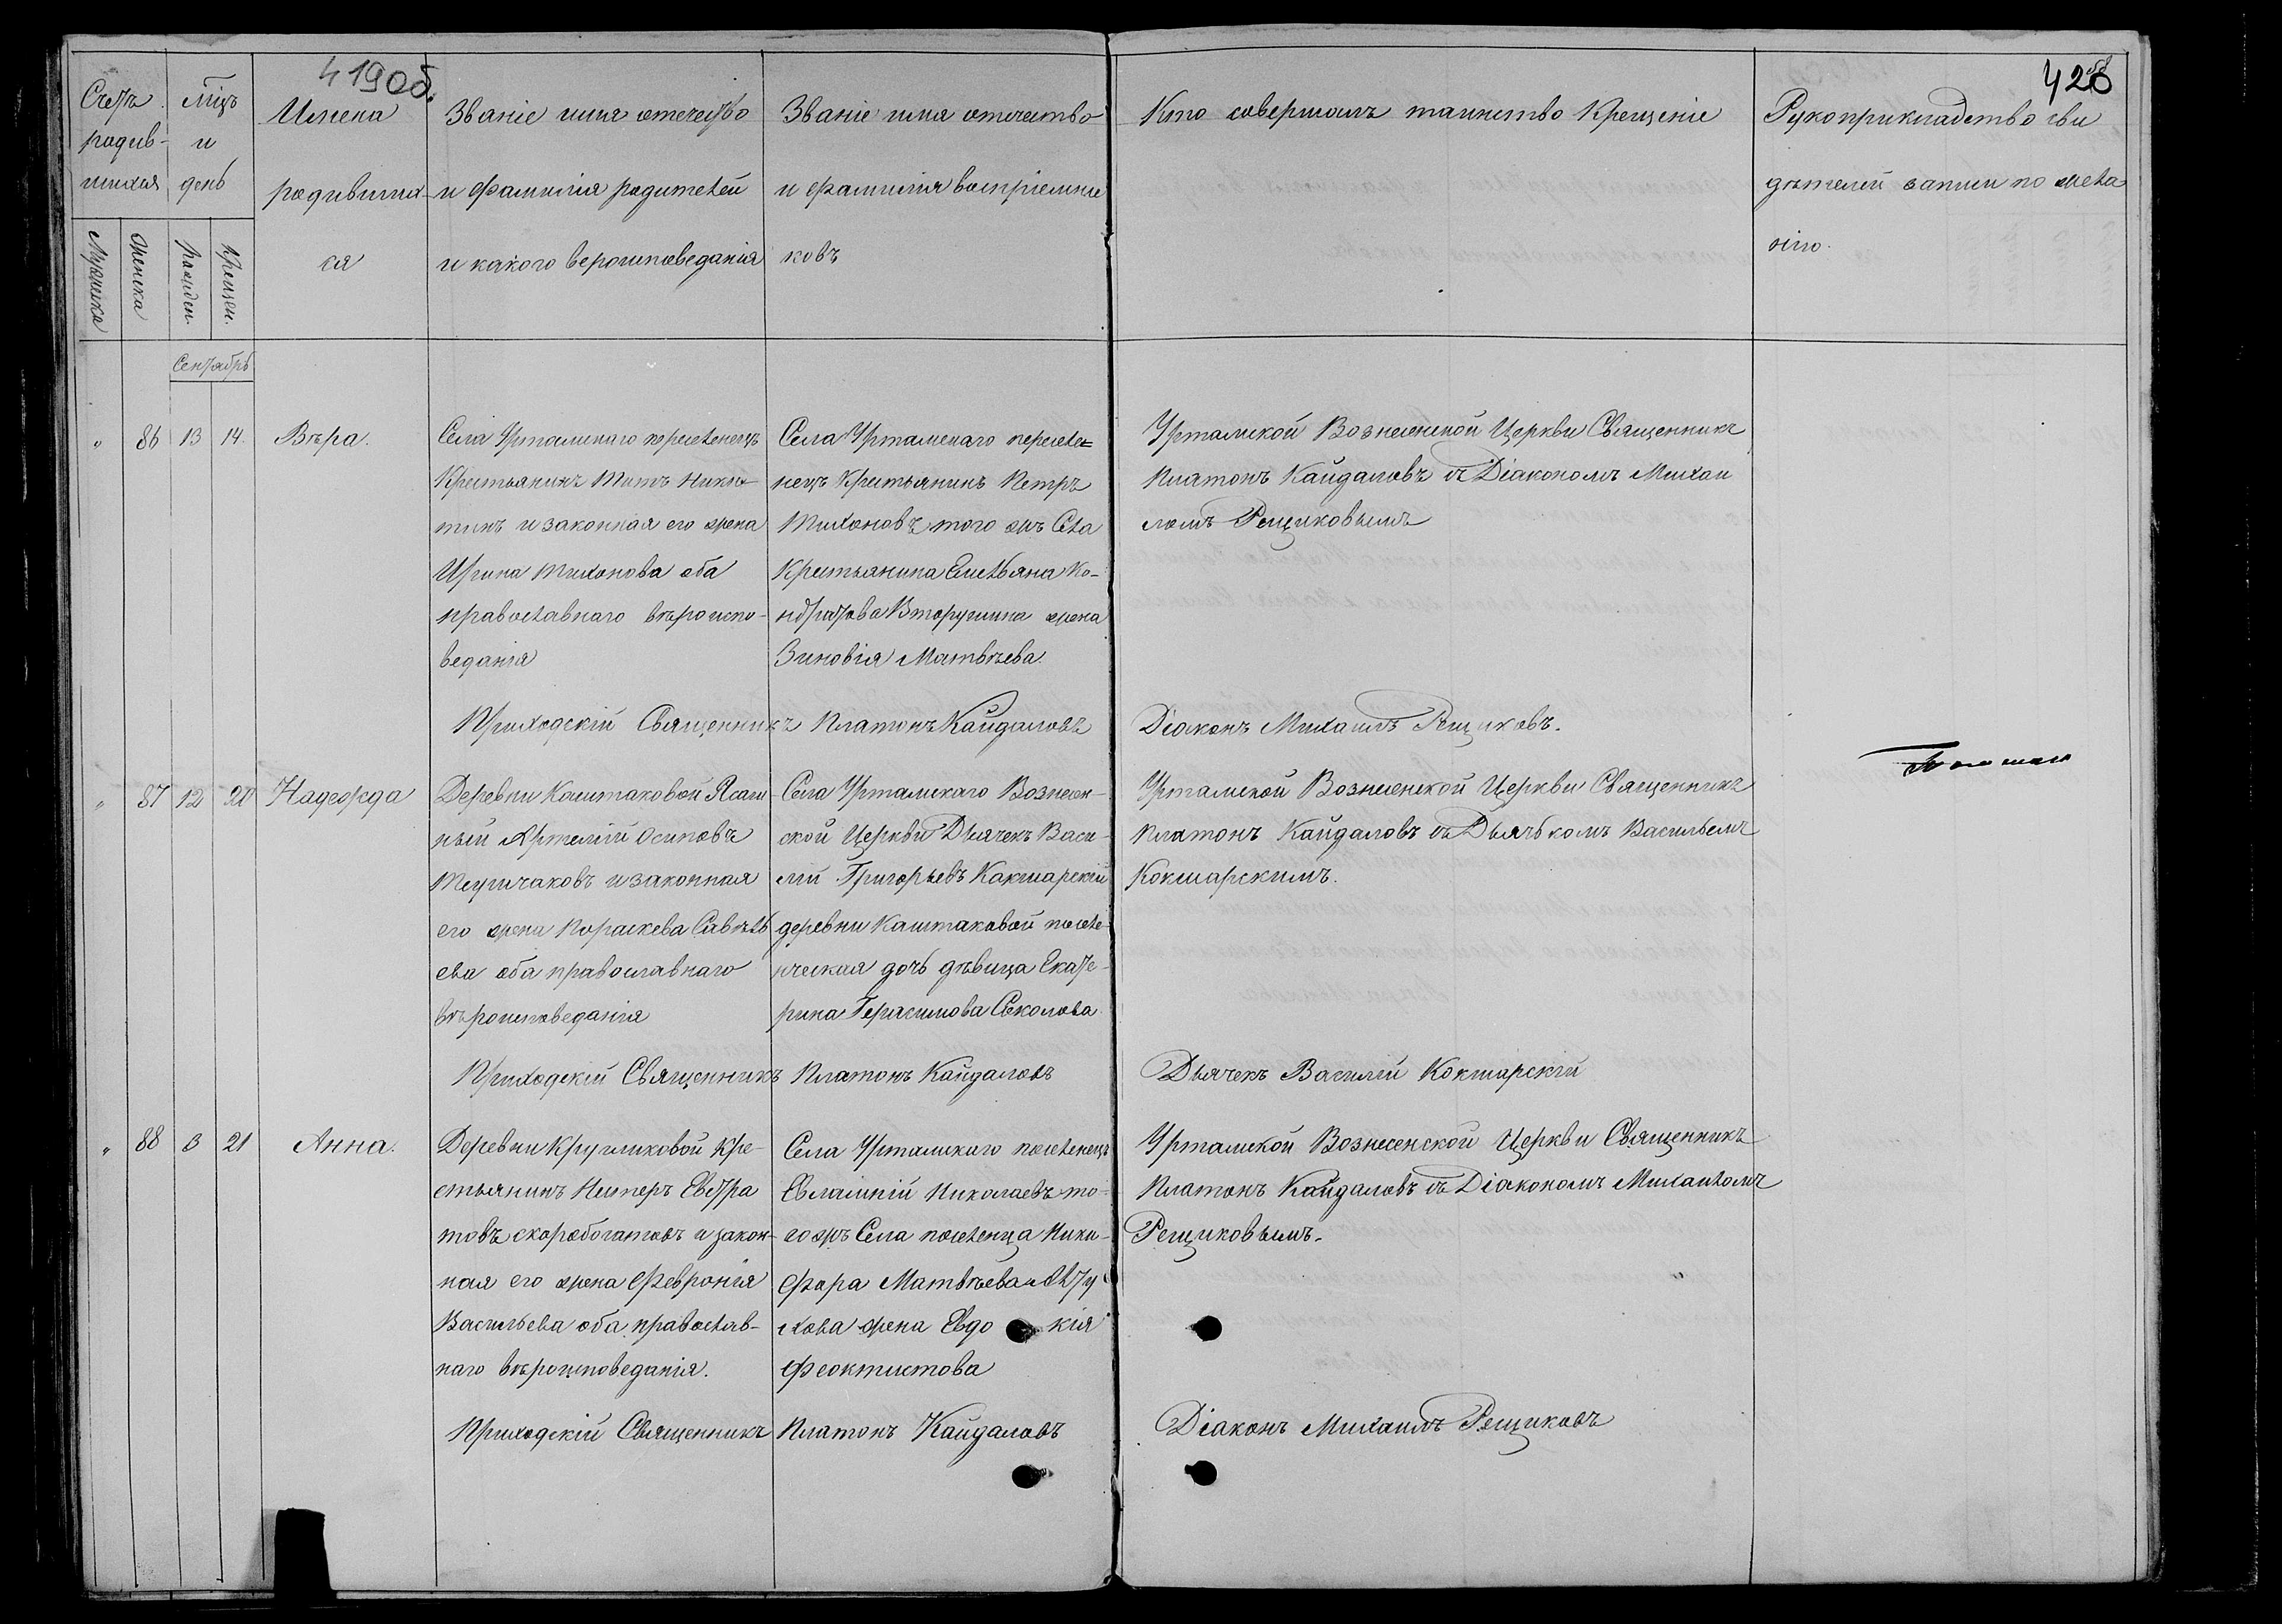 419об.
420
Счетъ
родив-
шихся
Мѣцъ
и
день
Имена
родивших-
ся
Званіе имя отечество
и фамилія родителей
и какого вероисповеданія
Званіе имя отечество
и фамилія воспріемни
ковъ
Кто совершалъ таинство Крещенія
Рукоприкладство сви
дѣтелей записи по жела
нію.
Мужеска
Женска
Рожден.
Крещен.
Сентябрь
" 86 13 14. Вѣра.
Села Уртамскаго переселенецъ
Крестьянинъ Титъ Ники-
тинъ и законная его жена
Ирина Тихонова оба
православнаго вѣроиспо-
веданія
Села Уртамскаго пересele=
нецъ Крестьянинъ Петръ
Тихоновъ того жъ Села
Крестьянина Емельяна Ко-
ндратова Вторушина жена
Зиновія Матвѣева.
Уртамской Вознесенской Церкви Священникъ
Платонъ Кайдаловъ съ Діакономъ Михаи
ломъ Рещиковымъ
Приходскій Священникъ Платонъ Кайдаловъ
Діаконъ Михаилъ Рещиковъ.
" 87 12 20 Надежда
Деревни Каштаковой Ясаш-
ный Артемій Осиповъ
Теущаковъ и законная
его жена Пораскева Савель
ева оба православнаго
вѣроисповеданія
Села Уртамскаго Вознесен-
ской Церкви Дьячекъ Васи-
лій Григорьевъ Какшарскій
деревни Каштаковой поселе-
нческая дочь дѣвица Екате-
рина Герасимова Соколова.
Уртамской Вознесенской Церкви Священникъ
Платонъ Кайдаловъ съ Дьячькомъ Васильемъ
Кокшарскимъ.
Приходскій Священникъ Платонъ Кайдаловъ
Дьячекъ Василій Кокшарскій
" 88 3 21 Анна.
Деревни Кругликовой Кре-
стьянинъ Нестеръ Евстра
товъ скоробогатовъ и закон-
ная его жена Февронія
Васильева оба православ-
наго вѣроисповеданія.
Села Уртамскаго поселенецъ
Евлампій Николаевъ то-
го жъ Села поселенца Ники-
фора Матвѣева
жена Евдокія
Феоктистова
Уртамской Вознесенской Церкви Священникъ
Платонъ Кайдаловъ съ Діакономъ Михаиломъ
Рещиковымъ.
Приходскій Священникъ Платонъ Кайдаловъ
Діаконъ Михаилъ Рещиковъ